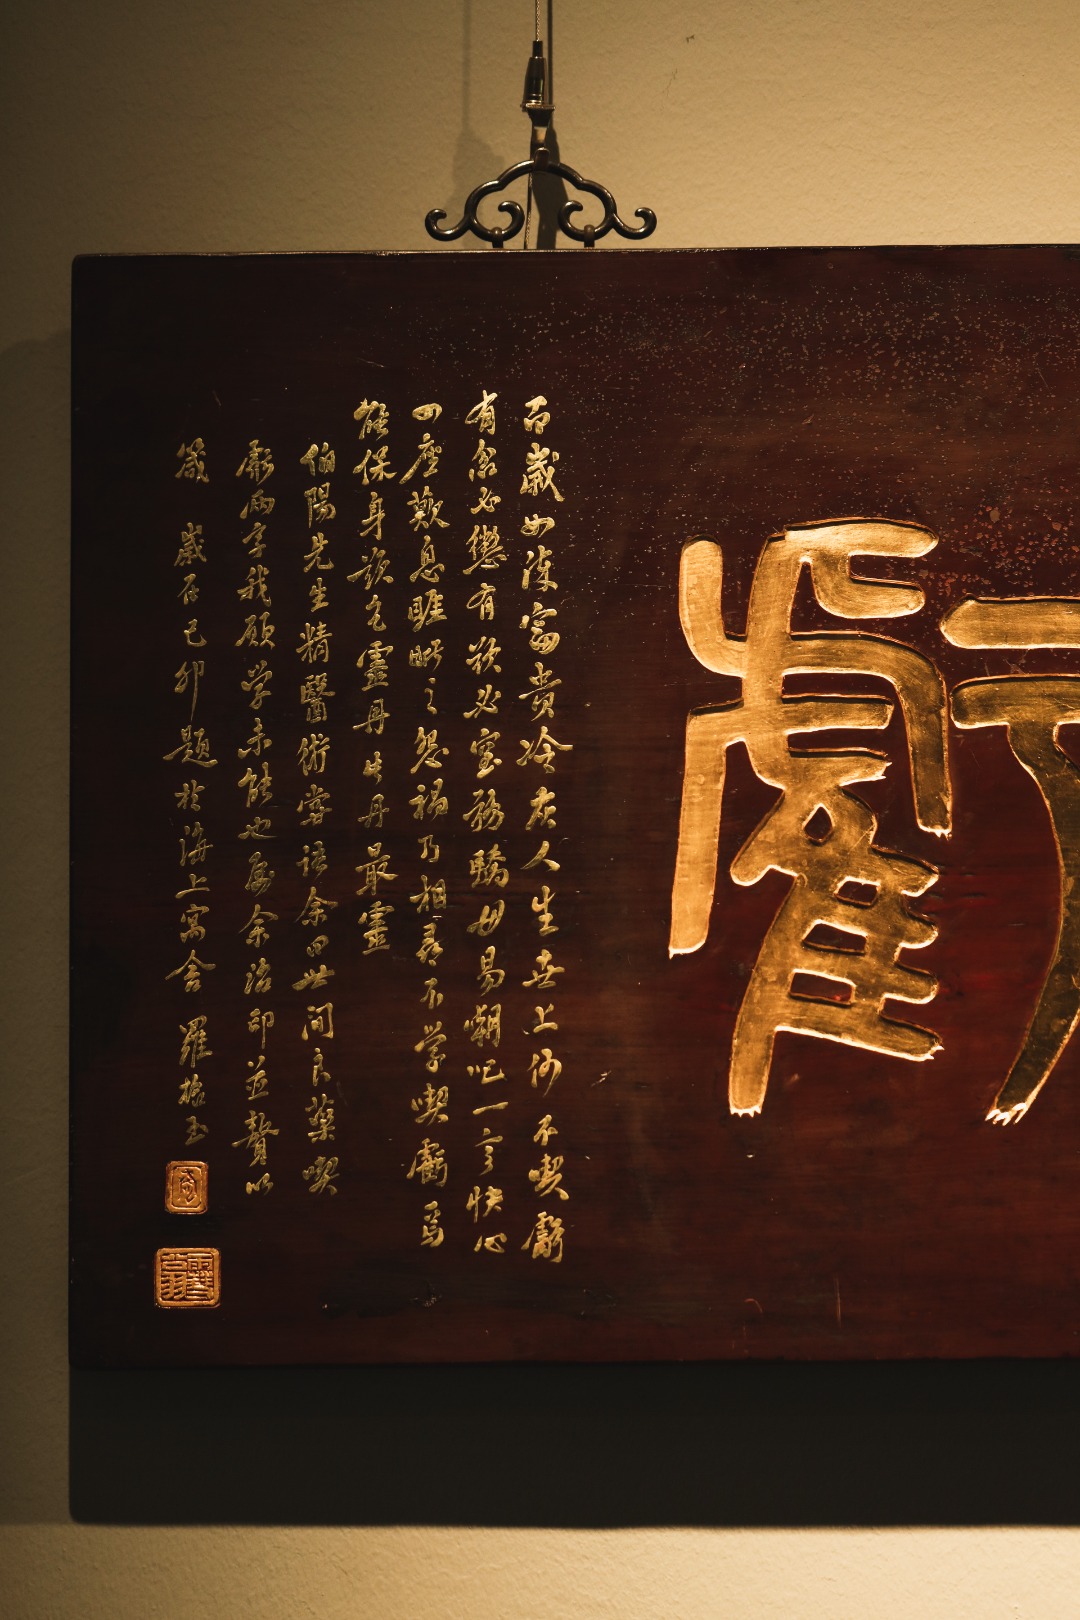 虧
百歲如流富貴冷灰人生世上何不喫虧
有忿必懲有欲必窒務驕毋易嘲吒一言快心
四座歎息睚眦之怨禍乃相尋不學喫虧焉
能保身欲乞靈丹此丹最靈
伯陽先生精醫術嘗語余曰世間良藥喫
虧兩字我願學未能也屬余治印並贅以
箴 歲在己卯題於海上寓舍 羅